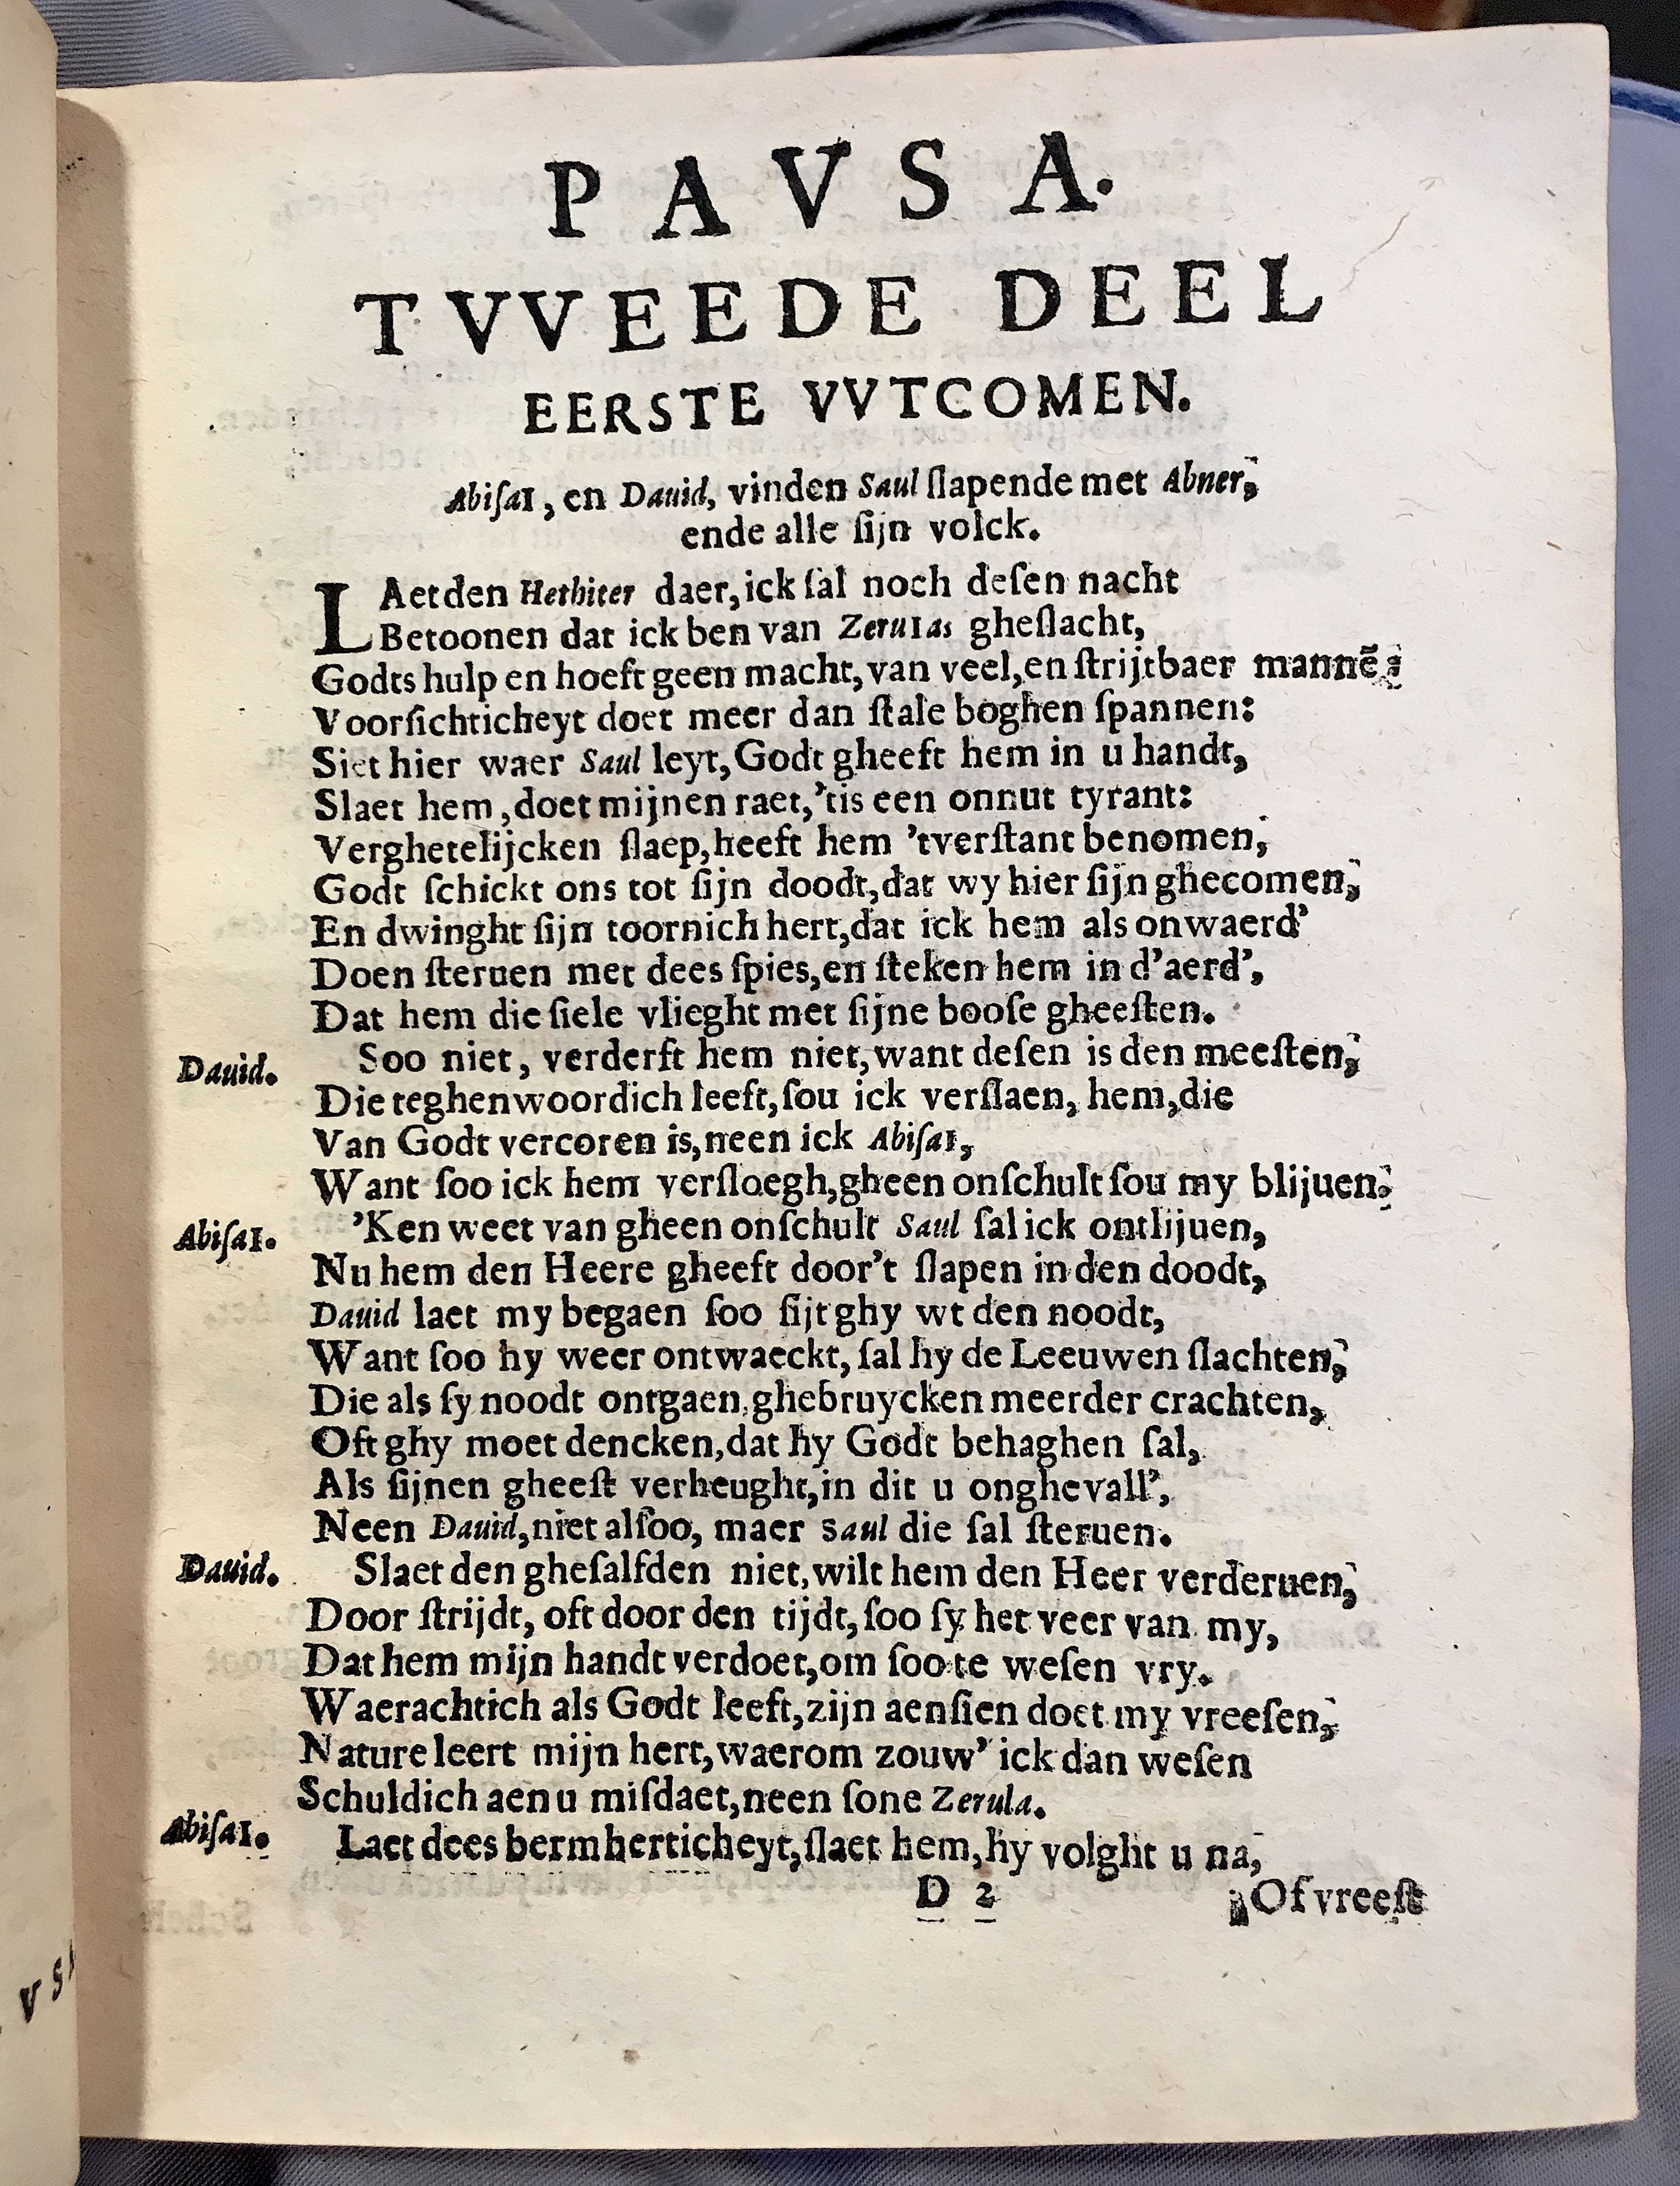 PAVSA.
TVVEEDE DEEL
EERSTE VVTCOMEN.
AbiſaI, en Dauid, vinden Saul ſlapende met Abner,
ende alle ſijn volck.
LAet den Hethiter daer, ick ſal noch deſen nacht
Betoonen dat ick ben van ZeruIas gheſlacht,
Godts hulp en hoeft geen macht, van veel, en ſtrijtbaer mannẽ:
Voorſichticheyt doet meer dan ſtale boghen ſpannen:
Siet hier waer Saul leyt, Godt gheeft hem in u handt,
Slaet hem, doet mijnen raet, 'tis een onnut tyrant:
Verghetelijcken ſlaep, heeft hem 'tverſtant benomen,
Godt ſchickt ons tot ſijn doodt, dat wy hier ſijn ghecomen,
En dwinght ſijn toornich hert, dat ick hem als onwaerd'
Doen ſteruen met dees ſpies, en ſteken hem in d'aerd',
Dat hem die ſiele vlieght met ſijne booſe gheeſten.
Dauid. Soo niet, verderft hem niet, want deſen is den meeſten,
Die teghenwoordich leeft, ſou ick verſlaen, hem, die
Van Godt vercoren is, neen ick AbiſaI,
Want ſoo ick hem verſloegh, gheen onſchult ſou my blijuen.
AbiſaI. 'Ken weet van gheen onſchult Saul ſal ick ontlijuen,
Nu hem den Heere gheeft door't ſlapen in den doodt,
Dauid laet my begaen ſoo ſijt ghy wt den noodt,
Want ſoo hy weer ontwaeckt, ſal hy de Leeuwen ſlachten,
Die als ſy noodt ontgaen, ghebruycken meerder crachten,
Oft ghy moet dencken, dat hy Godt behaghen ſal,
Als ſijnen gheeſt verheught, in dit u onghevall',
Neen Dauid, niet alſoo, maer Saul die ſal ſteruen.
Dauid. Slaet den gheſalfden niet, wilt hem den Heer verderuen,
Door ſtrijdt, oft door den tijdt, ſoo ſy het veer van my,
Dat hem mijn handt verdoet, om ſoo te weſen vry.
Waerachtich als Godt leeft, zijn aenſien doet my vreeſen,
Nature leert mijn hert, waerom zouw' ick dan weſen
Schuldich aen u miſdaet, neen ſone Zeruła.
AbiſaI. Laet dees bermherticheyt, ſlaet hem, hy volght u na,
D 2
Of vreeſt
VS